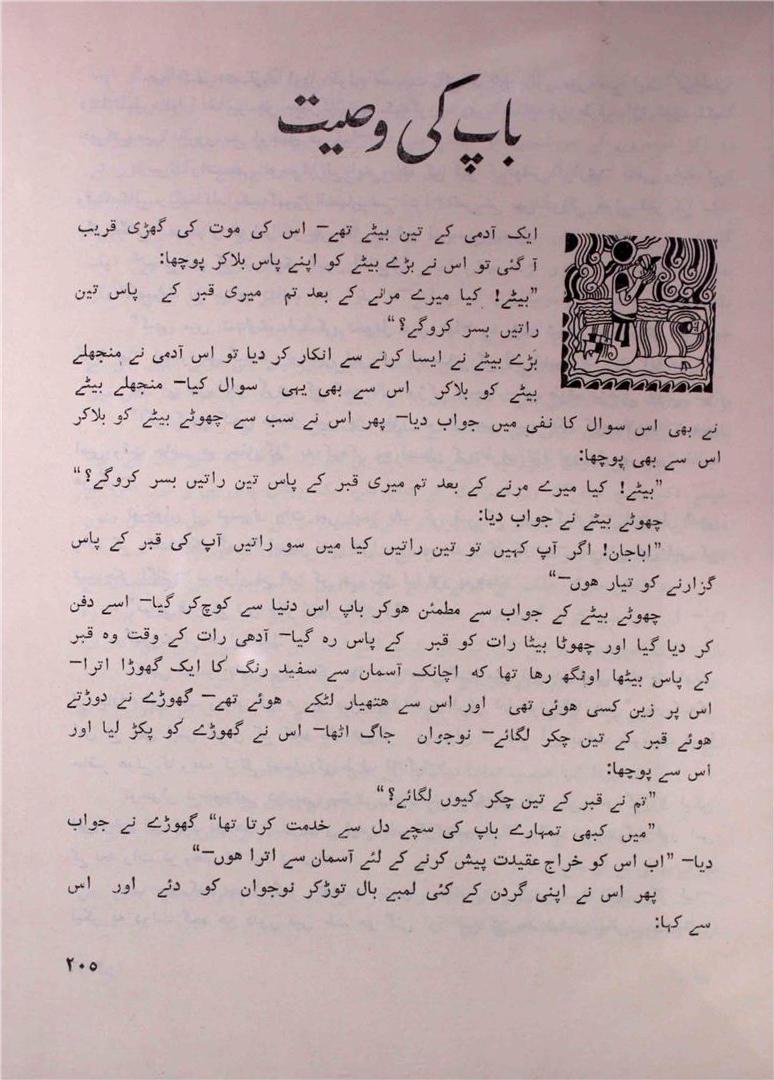 باپ کی وصیت
ایک آدمی کے تین بیٹے تھے— اس کی موت کی گھڑی قریب
آ گئی تو اس نے بڑے بیٹے کو اپنے پاس بلاکر پوچھا:
”بیٹے! کیا میرے مرانے کے بعد تم میری قبر کے پاس تین
راتیں بسر کروگے؟“
بڑے بیٹے نے ایسا کرنے سے انکار کر دیا تو اس آدمی نے منجھلے
بیٹے کو بلاکر اس سے بھی یہی سوال کیا— منجھلے بیٹے
نے بھی اس سوال کا نفی میں جواب دیا— پھر اس نے سب سے چھوٹے بیٹے کو بلاکر
اس سے بھی پوچھا:
”بیٹے! کیا میرے مرنے کے بعد تم میری قبر کے پاس تین راتیں بسر کروگے؟“
چھوٹے بیٹے نے جواب دیا:
”اباجان! اگر آپ کہیں تو تین راتیں کیا میں سو راتیں آپ کی قبر کے پاس
گزارنے کو تیار ھوں—“
چھوٹے بیٹے کے جواب سے مطمئن ھوکر باپ اس دنیا سے کوچ کر گیا— اسے دفن
کر دیا گیا اور چھوٹا بیٹا رات کو قبر کے پاس رہ گیا— آدھی رات کے وقت وہ قبر
کے پاس بیٹھا اونگھ رھا تھا کہ اچانک آسمان سے سفید رنگ کا ایک گھوڑا اترا—
اس پر زین کسی ھوئی تھی اور اس سے ھتھیار لٹکے ھوئے تھے— گھوڑے نے دوڑتے
ھوئے قبر کے تین چکر لگائے— نوجوان جاگ اٹھا— اس نے گھوڑے کو پکڑ لیا اور
اس سے پوچھا:
”تم نے قبر کے تین چکر کیوں لگائے؟“
”میں کبھی تمہارے باپ کی سچے دل سے خدمت کرتا تھا“ گھوڑے نے جواب
دیا— ”اب اس کو خراج عقیدت پیش کرنے کے لئے آسمان سے اترا ھوں—“
پھر اس نے اپنی گردن کے کئی لمبے بال توڑکر نوجوان کو دئے اور اس
سے کہا:
۲۰۵